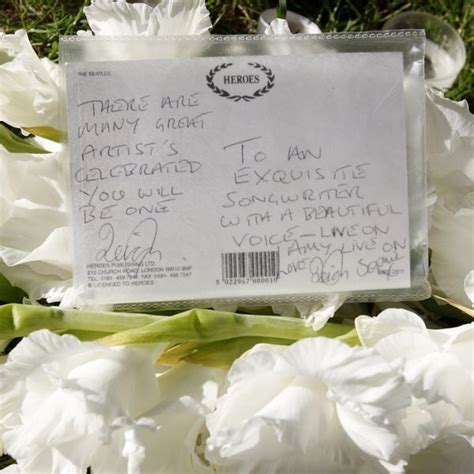 THE BEATLES
HEROES
THERE ARE
MANY GREAT
ARTIST'S
CELEBRATED
YOU WILL
BE ONE
TO AN
EXQUISITE
SONGWRITER
WITH A BEAUTIFUL
VOICE - LIVE ON
AMY LIVE ON
LOVE
HEROES PUBLISHING LTD.
212 CHURCH ROAD LONDON NW10 9NP
© LICENCED TO HEROES